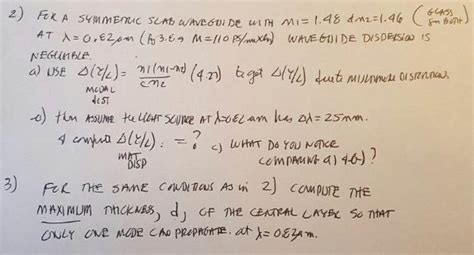 2) FOR A SYMMETRIC SLAB WAVEGUIDE WITH n1 = 1.48 & n2 = 1.46 (GLASS
FOR BOTH)
AT λ = 0.82 μm ( 3.8 M = 110 ps/nm·km) WAVEGUIDE DISPERSION IS
NEGLIGIBLE.
a) USE Δ(τ/L) = n1(n1-n2) / cn2 to get Δ(τ/L) due to DISTORTION.
MODAL
DIST
b) then ASSUME the LIGHT SOURCE AT λ = 0.82 μm has Δλ = 25nm.
& compute Δ(τ/L) = ? c) WHAT DO YOU NOTICE
MAT
DISP
COMPARING a) & b)?
3) FOR THE SAME CONDITIONS AS in 2) COMPUTE THE
MAXIMUM THICKNESS, d, OF THE CENTRAL LAYER SO THAT
ONLY ONE MODE CAN PROPAGATE. at λ = 0.82μm.